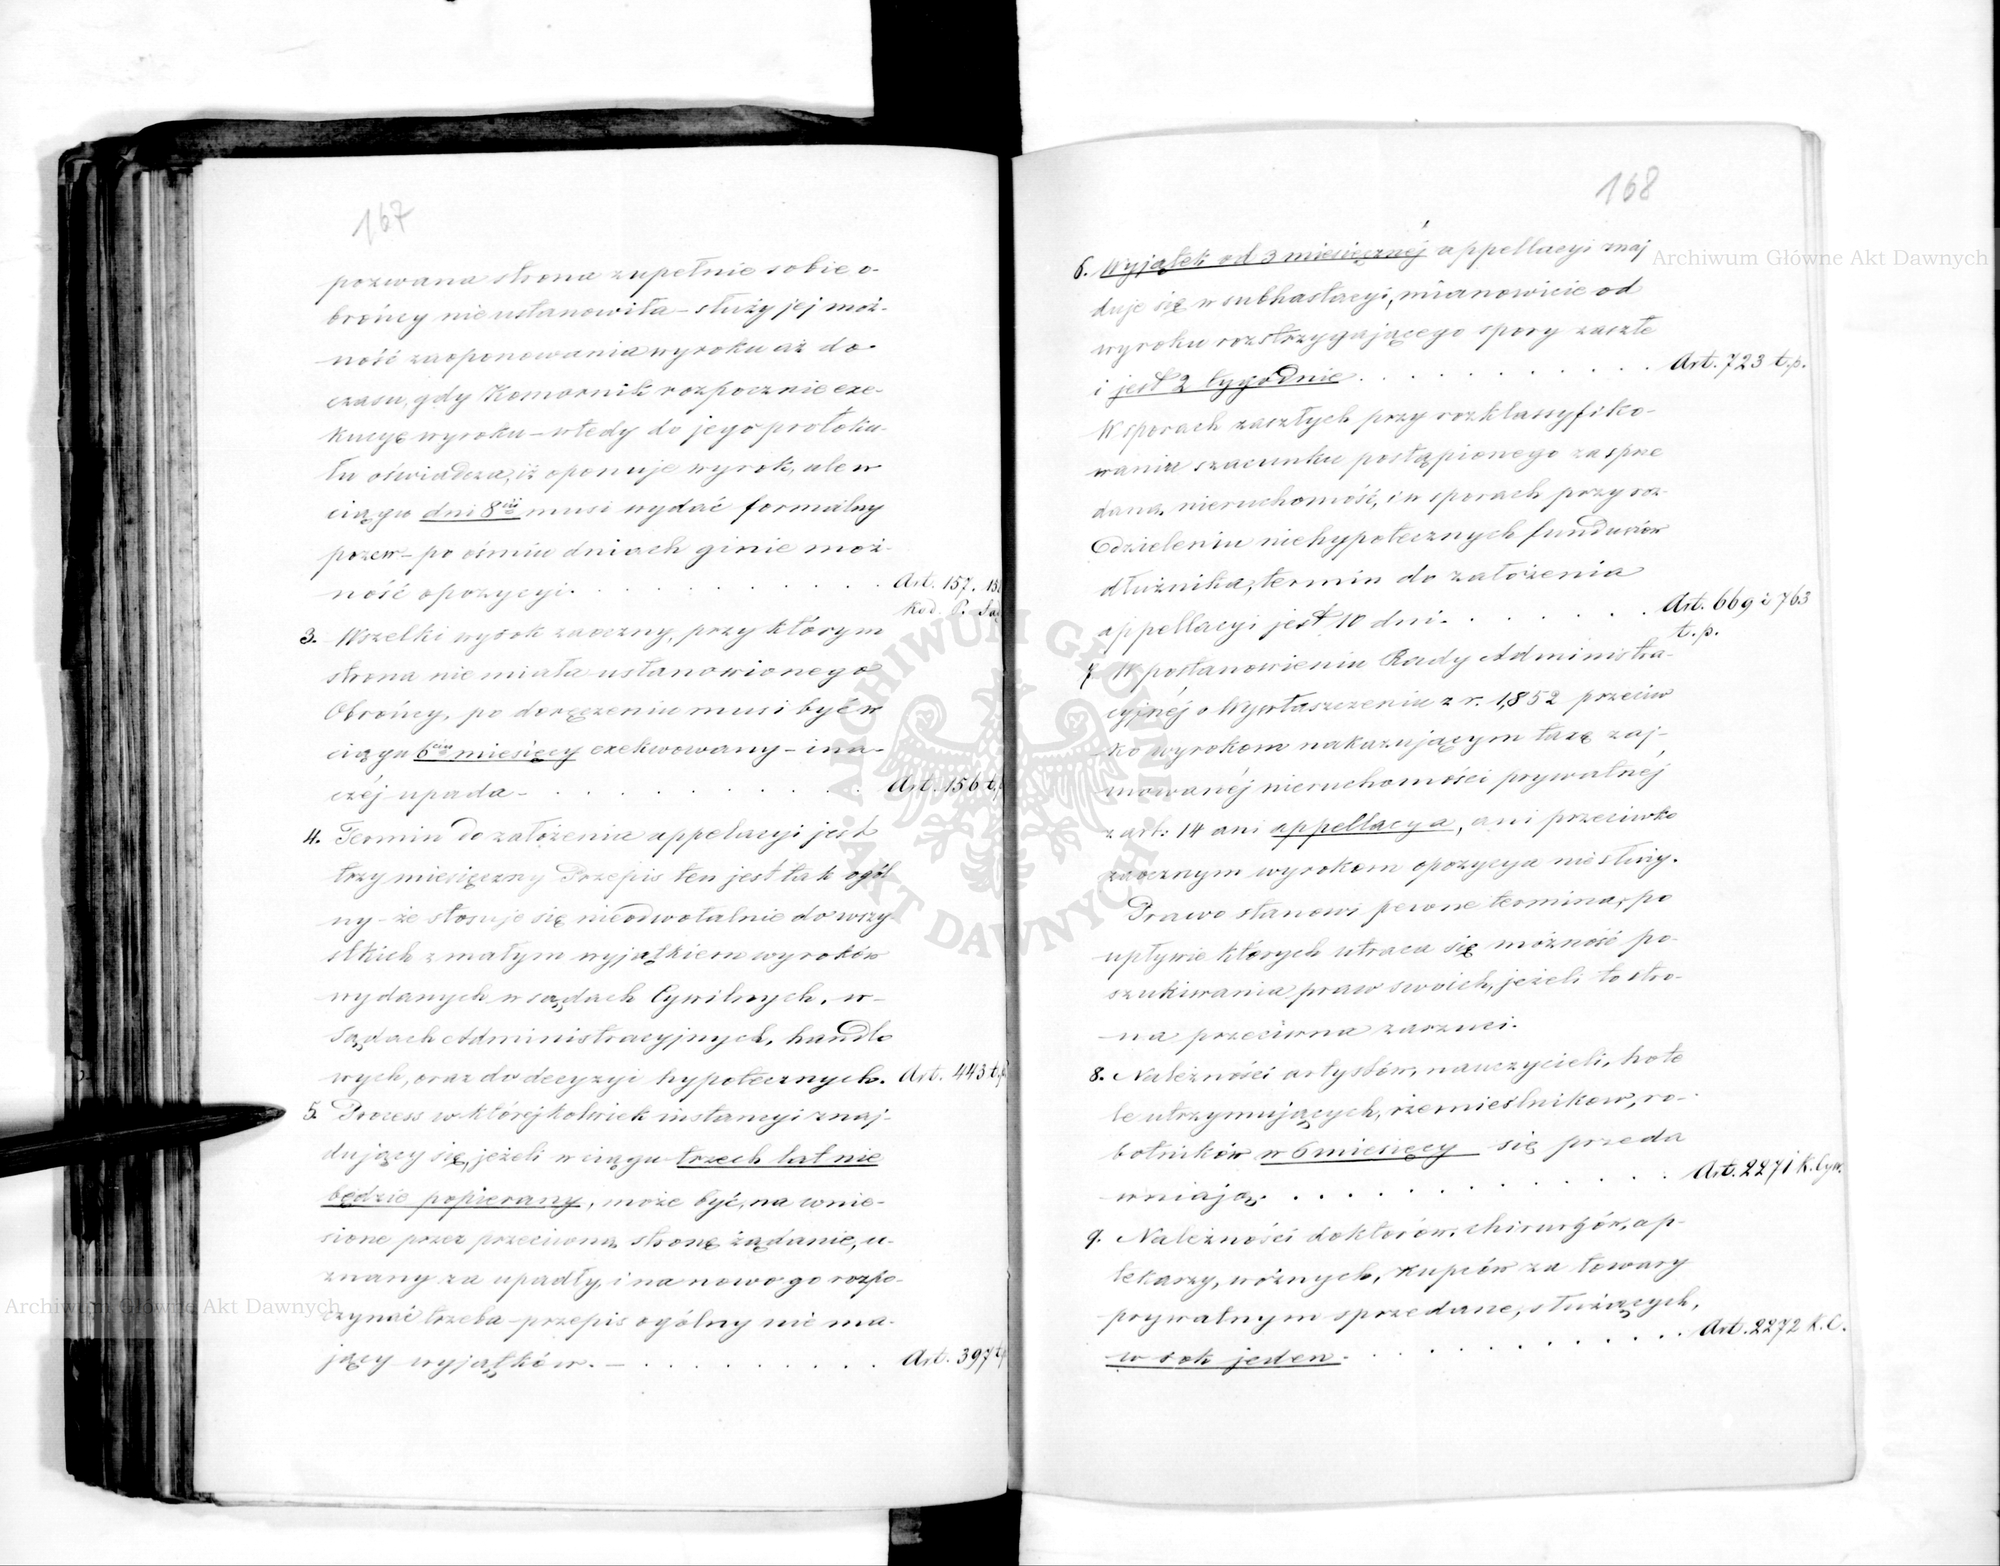 167
pozwana strona zupełnie sobie o-
brońcy nie ustanowiła – służy jej moż-
ność zaoponowania wyroku aż do
czasu, gdy Komornik rozpocznie exe-
kucyę wyroku – wtedy do jego protoku-
łu oświadcza, iż oponuje wyrok, ale w
ciągu dni 8iu musi wydać formalny
pozew – po ośmiu dniach ginie moż-
ność opozycyi. Art. 157. 158
Kod. P. Są
3. Wszelki wyrok zaoczny, przy którym
strona nie miała ustanowionego
Obrońcy, po doręczeniu musi być w
ciągu 6ciu miesięcy exekwowany – ina-
czéj upada – Art. 156 t.p
4. Termin do założenia appelacyi jest
trzy miesięczny Przepis ten jest tak ogól
ny – że stosuje się nieodwołalnie do wszy
stkich z małym wyjątkiem wyroków
wydanych w sądach Cywilnych, w –
Sądach Administracyjnych, handlo
wych, oraz do decyzyi hypotecznych. Art. 443 t.p
5. Process w którejkolwiek instancyi znaj-
dujący się, jeżeli w ciągu trzech lat nie
będzie popierany, może być, na wnie-
sione przez przeciwną stronę żądanie, u-
znany za upadły, i na nowo go rozpo-
czynać trzeba – przepis ogólny nie ma-
jący wyjątków. – Art. 397 t.p
168
6. Wyjątek od 3 miesięcznéj appellacyi znaj
duje się w subhastacyi, mianowicie od
wyroku rozstrzygającego spory zaszłe
i jest 2 tygodnie Art. 723 t.p.
W sporach zaszłych przy rozklassyfiko-
waniu szacunku postąpionego za sprze
daną nieruchomość, i w sporach przy roz-
dzieleniu niehypotecznych funduszów
dłużnika, termin do założenia
appellacyi jest 10 dni. Art. 669 i 763
t.p.
7 W postanowieniu Rady Administra-
cyjnéj o Wywłaszczeniu z r. 1852 przeciw
ko wyrokom nakazującym taxę zaj-
mowanéj nieruchomości prywatnéj
z art: 14 ani appellacya, ani przeciwko
zaocznym wyrokom opozycya nie służy.
Prawo stanowi pewne termina, po
upływie których utraca się możność po-
szukiwania praw swoich, jeżeli to stro-
na przeciwna zarzuci.
8. Należności artystów, nauczycieli, hote
le utrzymujących, rzemieślników, ro-
botników w 6 miesięcy się przeda
wniają. Art. 2271 K. Cyw.
9. Należności doktorów, chirurgów, ap-
tekarzy, woźnych, kupców za towary
prywatnym sprzedane, służących,
w rok jeden. Art. 2272 K. C.
Archiwum Główne Akt Dawnych
Archiwum Główne Akt Dawnych
ARCHIWUM GŁÓWNE AKT DAWNYCH